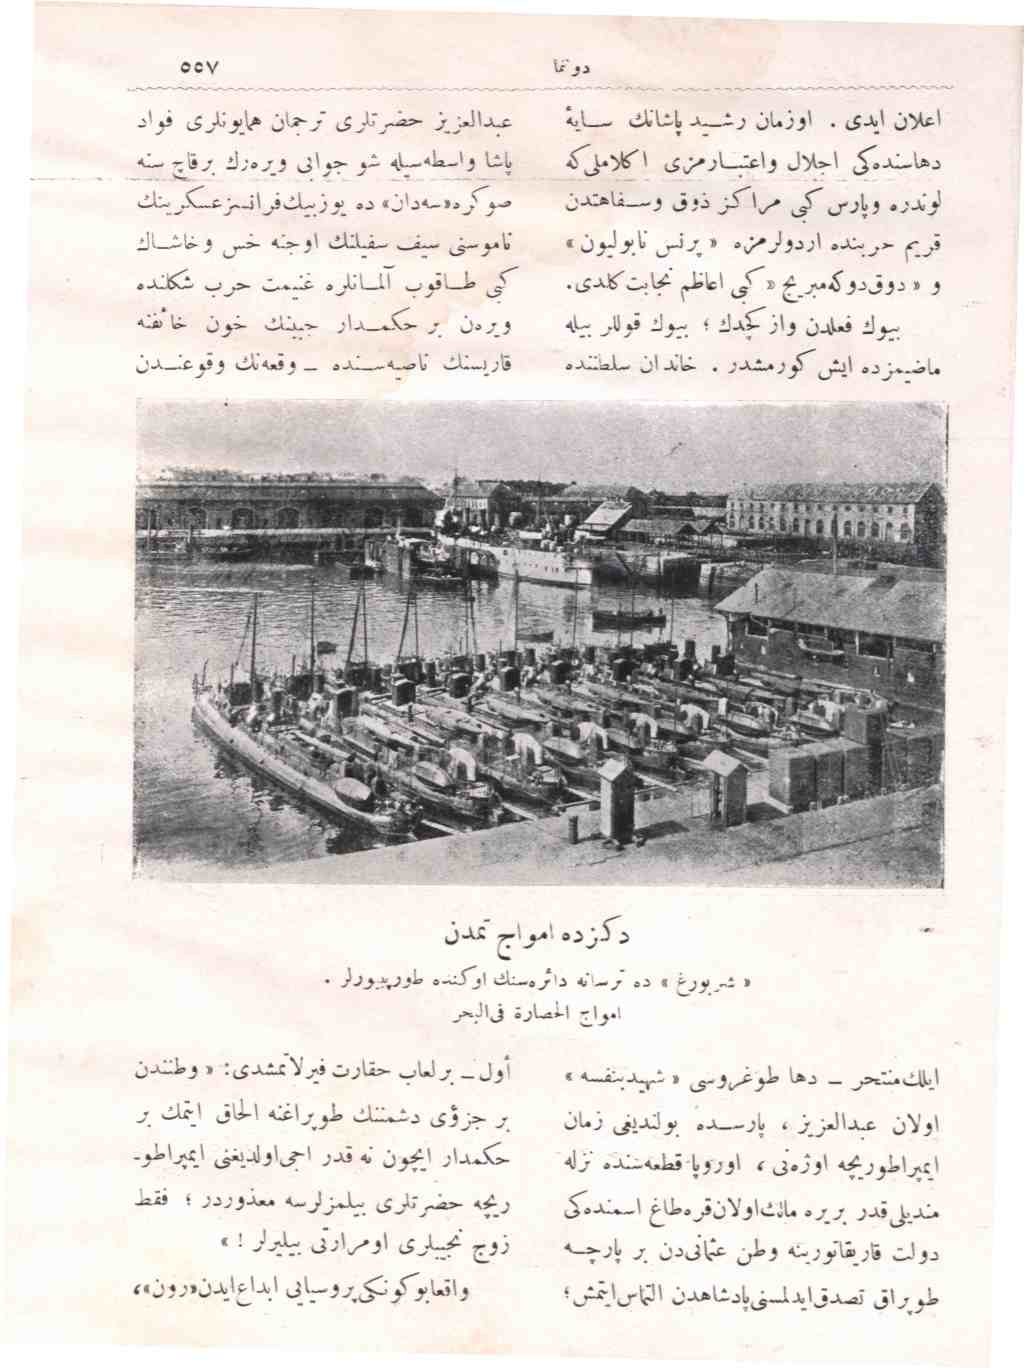 دوننما
٥٥٧
اعلان ایدی . اوزمان رشــید پاشانك ســایهٔ
دهاسنده‌كی اجلال واعتبــارمزی اكلاملی كه
لوندره وپارس كبی مراكز ذوق وســفاهتدن
قریم حربنده اردولرمزه « پرنس ناپولیون »
و « دوق دوكه‌مبریج » كبی اعاظم نجابت كلدی.
بیوك فعلدن واز كچدك ؛ بیوك قوللر بیله
ماضیمزده ایش كورمشدر . خاندان سلطتنده
عبدالعزیز حضرتلری ترجمان همایونلری فواد
پاشا واسطه‌سیله شو جوابی ویره‌رك برقاچ سنه
صوكره «سه‌دان» ده یوزبیك فرانسز عسكرینك
ناموسنی سیف سفیلنك اوجنه خس وخاشــاك
كبی طــاقوب آلمــانلره غنیمت حرب شكلنده
ویره‌ن بر حكمــدار جبینك خون خائفنه
قاریسنك ناصیه‌ســنده ـ وقعه‌نك وقوعنــدن
دكزده امواج تمدن
« شربورغ » ده ترسانه دائره‌سنك اوكنده طورپیدورلر .
امواج الحصارة فی‌البحر
ایلك منتحر ـ دها طوغروسی « شهیدبنفسه »
اولان عبدالعزیز ، پارســده بولندیغی زمان
ایمپراطوریچه اوژه‌نی ، اوروپا قطعه‌سنده نزله
مندیلی قدر بریره مالك اولان قره‌طاغ اسمنده‌كی
دولت قاریقاتورینه وطن عثمانی‌دن بر پارچــه
طوپراق تصدق ایدلمسنی پادشاهدن التماس ایتمش ؛
أول ـ بر لعاب حقارت فیرلاتمشدی: « وطنندن
بر جزؤی دشمننك طوپراغنه الحاق ایتمك بر
حكمدار ایچون نه قدر اجی اولدیغنی ایمپراطو-
ریچه حضرتلری بیلمزلرسه معذوردر ؛ فقط
زوج نجیبلری اومرارتی بیلیرلر ! »
واقعا بوكونكی پروسیایی ابداع ایدن «رون»،